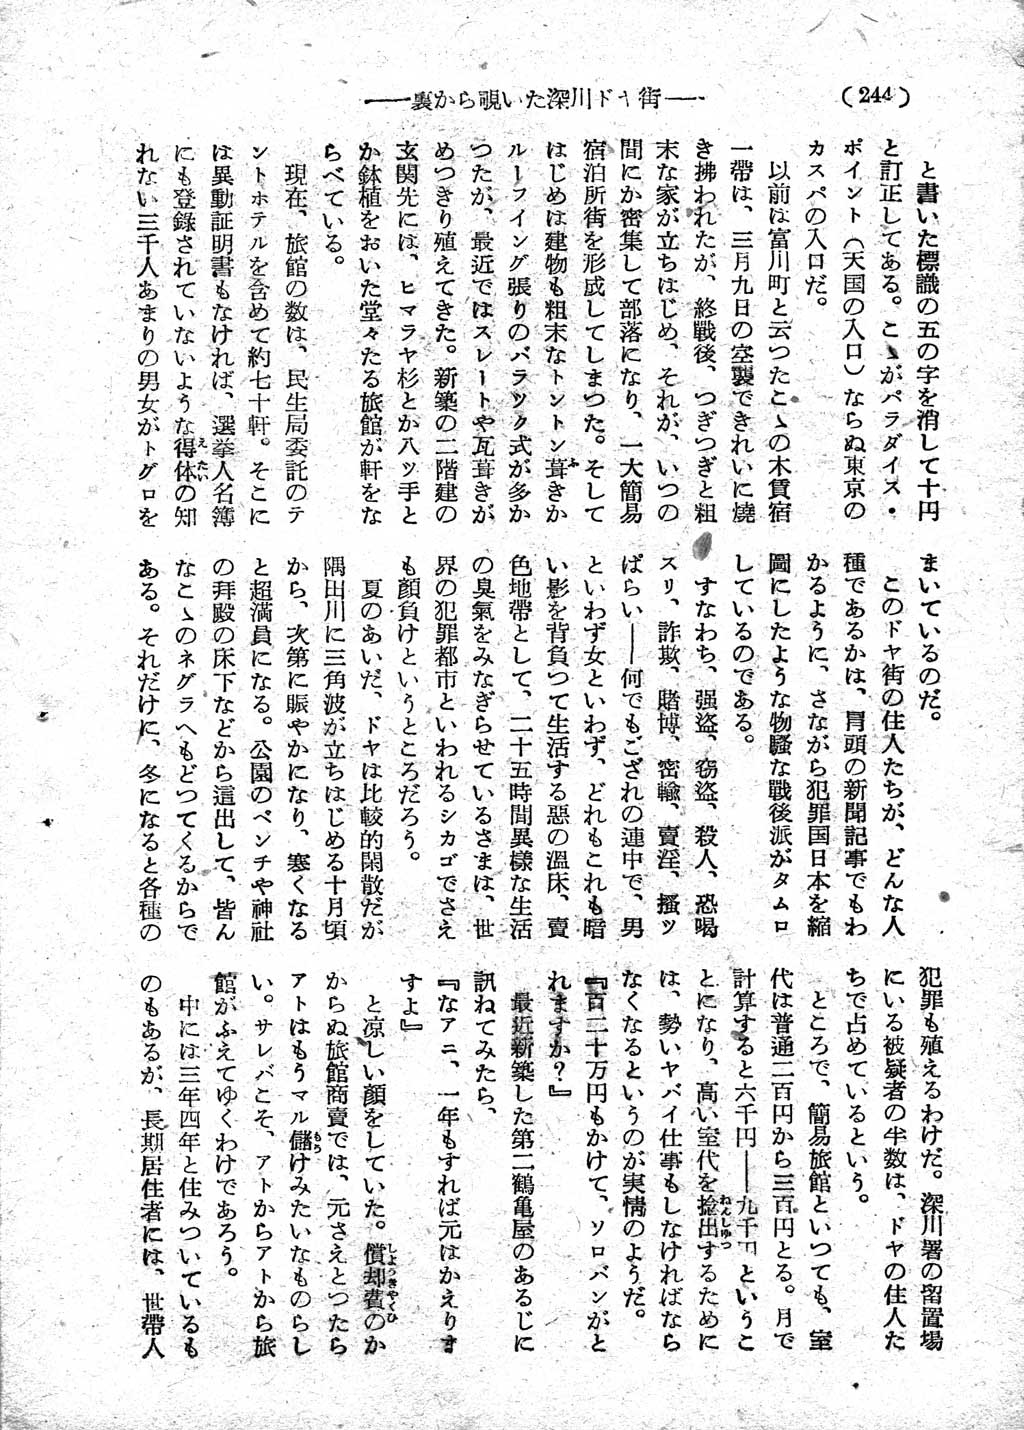 (244)
――裏から覗いた深川ドヤ街――
と書いた標識の五の字を消して十円
と訂正してある。こゝがパラダイス・
ポイント（天国の入口）ならぬ東京の
カスパの入口だ。
以前は富川町と云つたこゝの木賃宿
一帶は、三月九日の空襲できれいに燒
き拂われたが、終戰後、つぎつぎと粗
末な家が立ちはじめ、それが、いつの
間にか密集して部落になり、一大簡易
宿泊所街を形成してしまつた。そして
はじめは建物も粗末なトントン葺きか
ルーフイング張りのバラツク式が多か
つたが、最近ではスレートや瓦葺きが
めつきり殖えてきた。新築の二階建の
玄関先には、ヒマラヤ杉とか八ツ手と
か鉢植をおいた堂々たる旅館が軒をな
らべている。
現在、旅館の数は、民生局委託のテ
ントホテルを含めて約七十軒。そこに
は異動証明書もなければ、選挙人名簿
にも登錄されていないような得体の知
れない三千人あまりの男女がトグロを
まいているのだ。
このドヤ街の住人たちが、どんな人
種であるかは、冐頭の新聞記事でもわ
かるように、さながら犯罪国日本を縮
圖にしたような物騷な戰後派がタムロ
しているのである。
すなわち、强盗、窃盗、殺人、恐喝
スリ、詐欺、賭博、密輸、賣淫、搔ッ
ぱらい――何でもござれの連中で、男
といわず女といわず、どれもこれも暗
い影を背負つて生活する惡の溫床、賣
色地帶として、二十五時間異樣な生活
の臭氣をみなぎらせているさまは、世
界の犯罪都市といわれるシカゴでさえ
も顏負けというところだろう。
夏のあいだ、ドヤは比較的閑散だが
隅田川に三角波が立ちはじめる十月頃
から、次第に賑やかになり、寒くなる
と超滿員になる。公園のベンチや神社
の拜殿の床下などから這出して、皆ん
なこゝのネグラへもどつてくるからで
ある。それだけに、冬になると各種の
犯罪も殖えるわけだ。深川署の留置場
にいる被疑者の半数は、ドヤの住人た
ちで占めているという。
ところで、簡易旅館といつても、室
代は普通二百円から三百円とる。月で
計算すると六千円――九千円というこ
とになり、高い室代を捻出するために
は、勢いヤバイ仕事もしなければなら
なくなるというのが実情のようだ。
『百二十万円もかけて、ソロバンがと
れますか？』
最近新築した第二鶴亀屋のあるじに
訊ねてみたら、
『なアニ、一年もすれば元はかえりま
すよ』
と涼しい顏をしていた。償却費のか
からぬ旅館商賣では、元さえとつたら
アトはもうマル儲けみたいなものらし
い。サレバこそ、アトからアトから旅
館がふえてゆくわけであろう。
中には三年四年と住みついているも
のもあるが、長期居住者には、世帶人